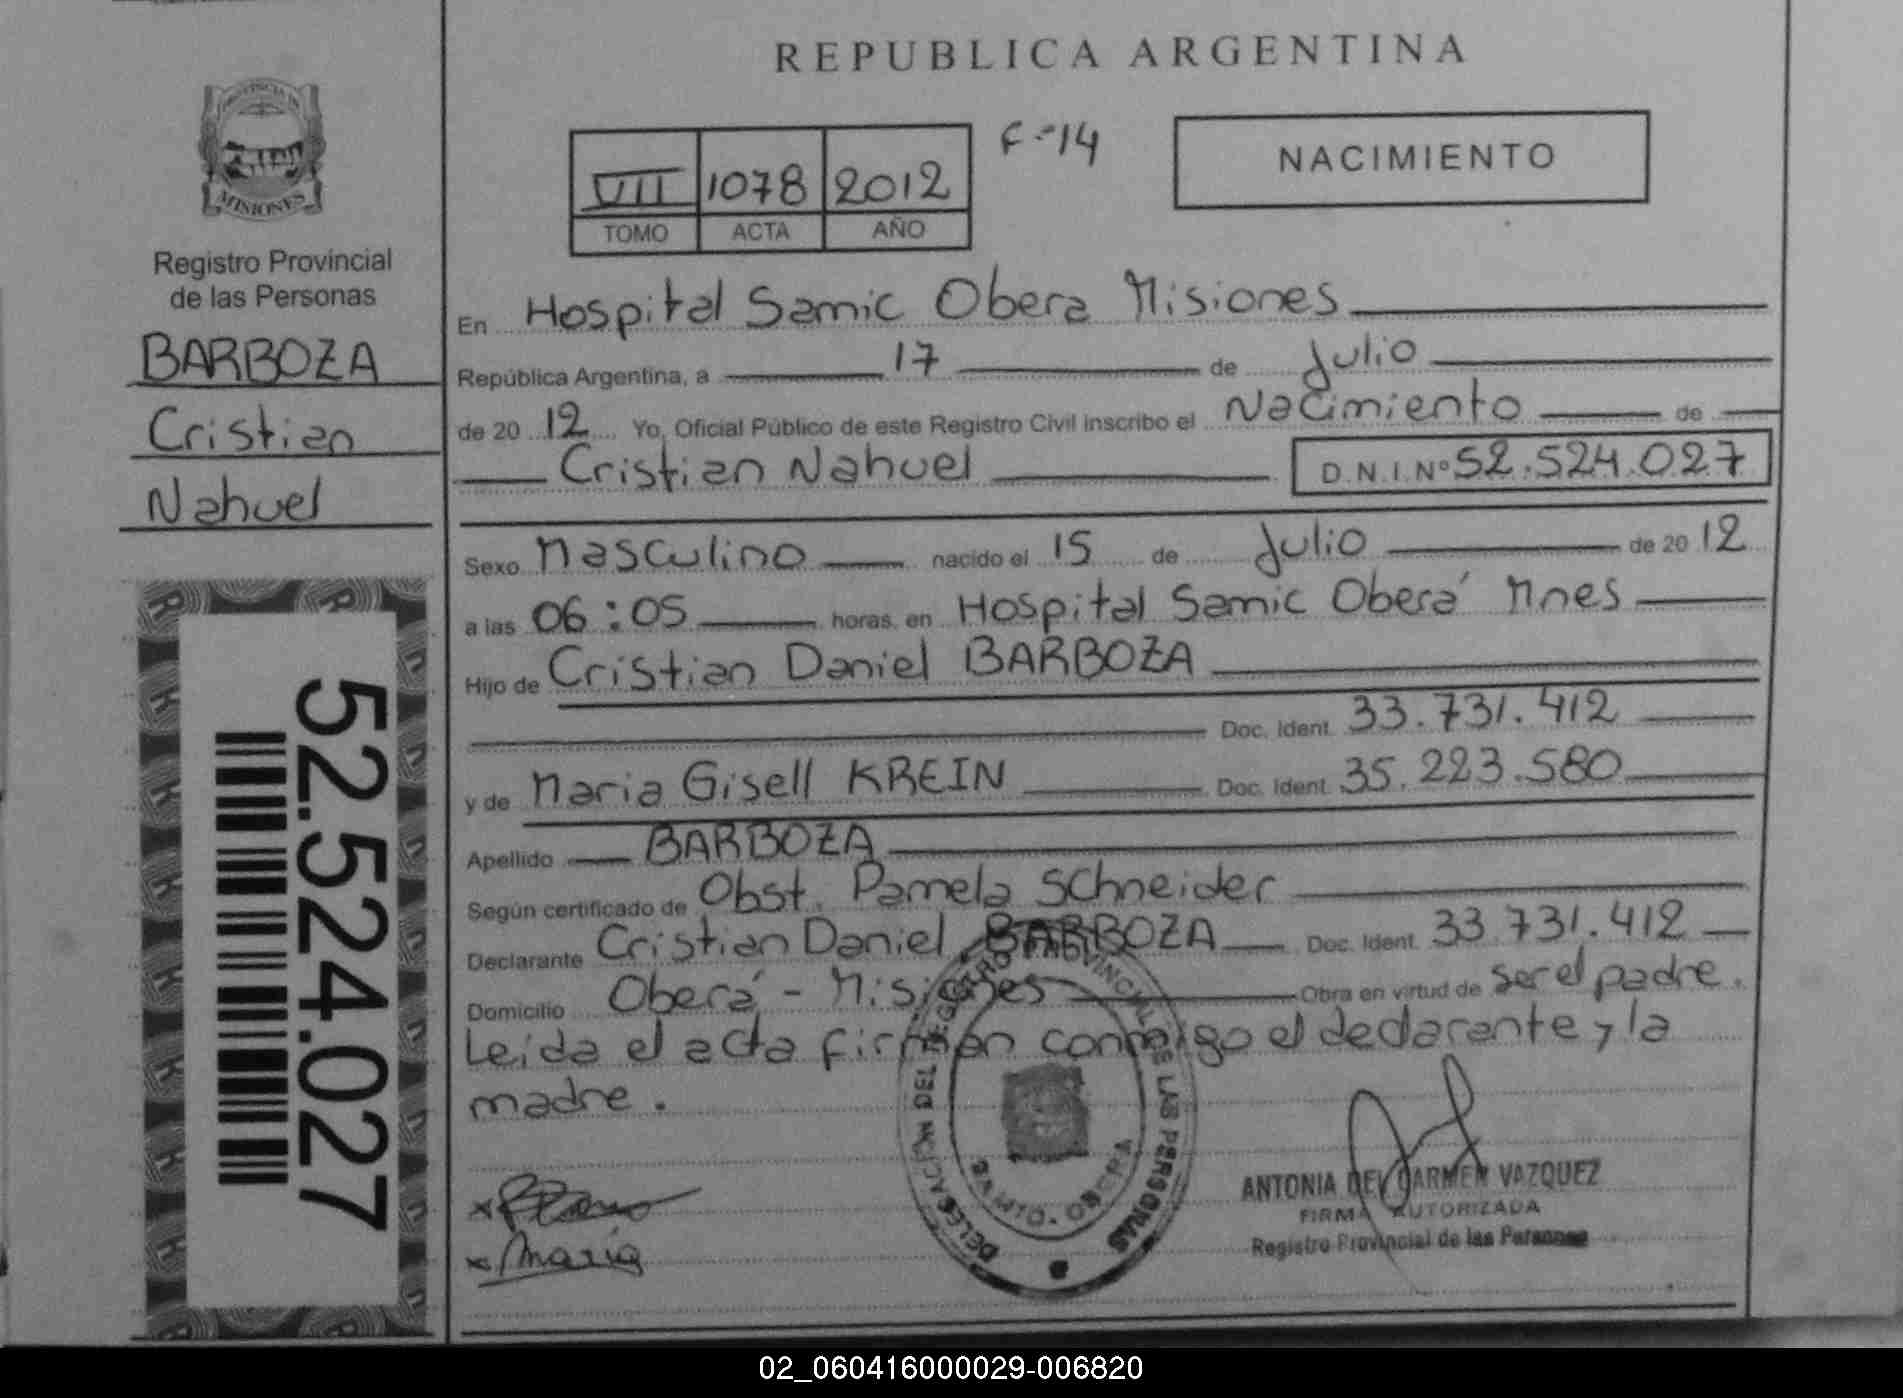 REPUBLICA ARGENTINA
PROVINCIA DE
MISIONES
Registro Provincial
de las Personas
BARBOZA
Cristian
Nahuel
52.524.027
VIII 1078 2012
TOMO ACTA AÑO
F-14
NACIMIENTO
En Hospital Samic Obera Misiones
República Argentina, a 17 de Julio
de 20 12 Yo, Oficial Público de este Registro Civil inscribo el Nacimiento de
Cristian Nahuel D.N.I.Nº 52.524.027
Sexo Masculino nacido el 15 de Julio de 20 12
a las 06:05 horas, en Hospital Samic Oberá Mnes
Hijo de Cristian Daniel BARBOZA
Doc. Ident. 33.731.412
y de Maria Gisell KREIN Doc. Ident. 35.223.580
Apellido BARBOZA
Según certificado de Obst. Pamela Schneider
Declarante Cristian Daniel BARBOZA Doc. Ident. 33.731.412
Domicilio Oberá - Misiones Obra en virtud de ser el padre.
Leida el acta firman conmigo el declarante y la
madre.
DELEGACION DEL REGISTRO PROVINCIAL DE LAS PERSONAS
DPTO. OBERA
x
x Maria
ANTONIA DEL CARMEN VAZQUEZ
FIRMA AUTORIZADA
Registro Provincial de las Personas
02_060416000029-006820